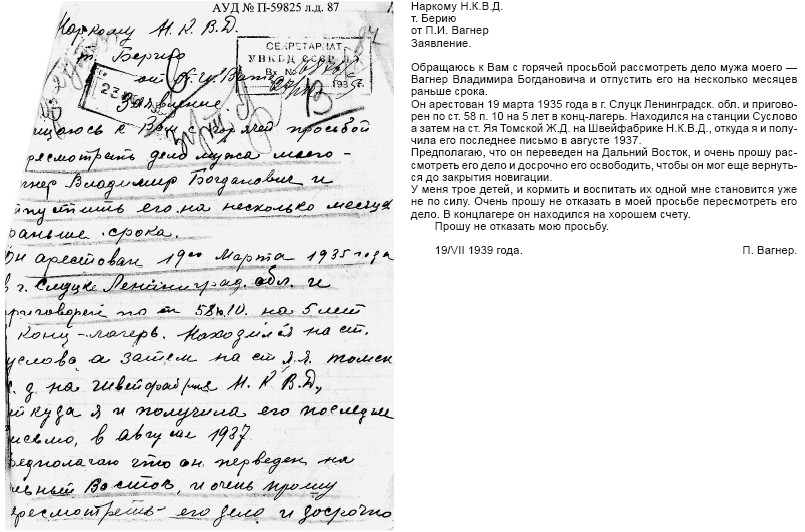 АУД № П-59825 л.д. 87
Наркому Н.К.В.Д.
т. Берию
от П.И. Вагнер
СЕКРЕТАРИАТ
УНКВД СССР ЛО
Вх №
193
23
Заявление
щаюсь к Вам с горячей просьбой
ресмотреть дело мужа моего –
гнер Владимир Богданович и
пустить его на несколько месяца
раньше срока.
Он арестован 19го Марта 1935 года
в г. Слуцке Ленинград. обл. и
приговорен по ст 58 п10. на 5 лет
Конц-лагерь. Находился на ст.
услова а затем на ст Я.я. томск
ж. д на Швейфабрике Н.К.В.Д,
откуда я и получила его последне
исьмо, в августе 1937
редполагаю что он переведен на
льный Восток, и очень прошу
ересмотреть его дело и досрочно
Наркому Н.К.В.Д.
т. Берию
от П.И. Вагнер
Заявление.
Обращаюсь к Вам с горячей просьбой рассмотреть дело мужа моего —
Вагнер Владимира Богдановича и отпустить его на несколько месяцев
раньше срока.
Он арестован 19 марта 1935 года в г. Слуцк Ленинградск. обл. и пригово-
рен по ст. 58 п. 10 на 5 лет в конц-лагерь. Находился на станции Суслово
а затем на ст. Яя Томской Ж.Д. на Швейфабрике Н.К.В.Д., откуда я и полу-
чила его последнее письмо в августе 1937.
Предполагаю, что он переведен на Дальний Восток, и очень прошу рас-
смотреть его дело и досрочно его освободить, чтобы он мог еще вернуть-
ся до закрытия новигации.
У меня трое детей, и кормить и воспитать их одной мне становится уже
не по силу. Очень прошу не отказать в моей просьбе пересмотреть его
дело. В концлагере он находился на хорошем счету.
Прошу не отказать мою просьбу.
19/VII 1939 года. П. Вагнер.